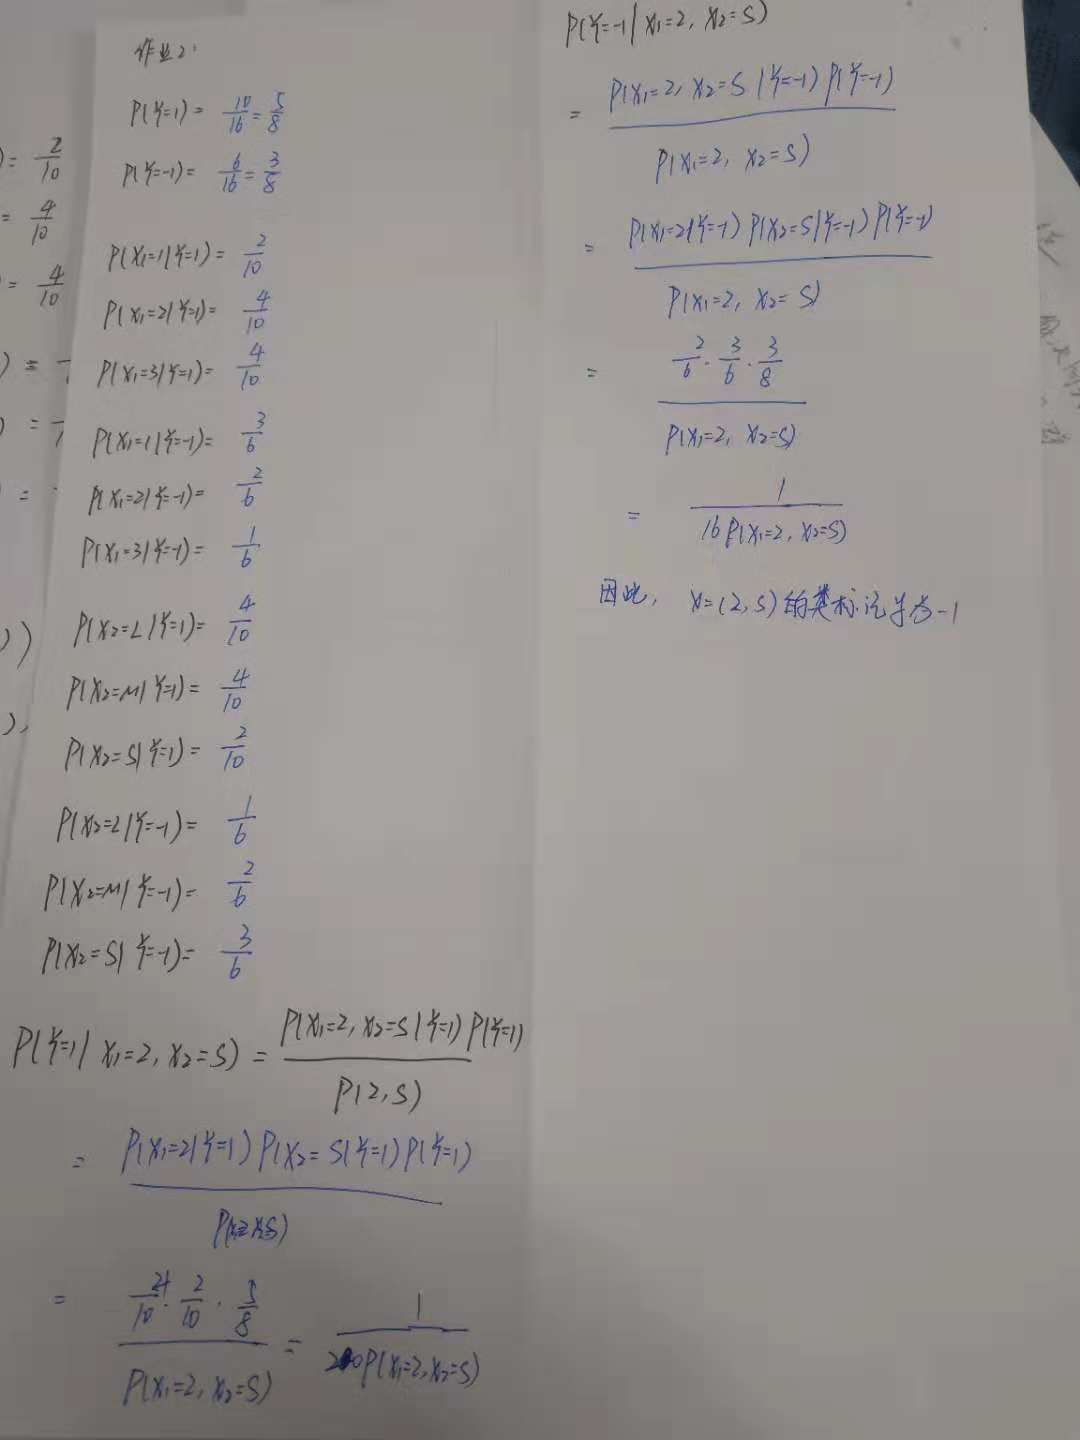 作业2:
P(Y=1) = 10/16 = 5/8
P(Y=-1) = 6/16 = 3/8
P(X₁=1|Y=1) = 2/10
P(X₁=2|Y=1) = 4/10
P(X₁=3|Y=1) = 4/10
P(X₁=1|Y=-1) = 3/6
P(X₁=2|Y=-1) = 2/6
P(X₁=3|Y=-1) = 1/6
P(X₂=L|Y=1) = 4/10
P(X₂=M|Y=1) = 4/10
P(X₂=S|Y=1) = 2/10
P(X₂=L|Y=-1) = 1/6
P(X₂=M|Y=-1) = 2/6
P(X₂=S|Y=-1) = 3/6
P(Y=1|X₁=2, X₂=S) = P(X₁=2, X₂=S|Y=1)P(Y=1) / P(2,S)
= P(X₁=2|Y=1)P(X₂=S|Y=1)P(Y=1)
= 4/10 · 2/10 · 5/8 / P(X₁=2, X₂=S) = 1 / 20P(X₁=2, X₂=S)
P(Y=-1|X₁=2, X₂=S)
= P(X₁=2, X₂=S|Y=-1)P(Y=-1) / P(X₁=2, X₂=S)
= P(X₁=2|Y=-1)P(X₂=S|Y=-1)P(Y=-1) / P(X₁=2, X₂=S)
= 2/6 · 3/6 · 3/8 / P(X₁=2, X₂=S)
= 1 / 16P(X₁=2, X₂=S)
因此, x=(2,S)的类标记y为-1
)= 2/10
= 4/10
)= 4/10